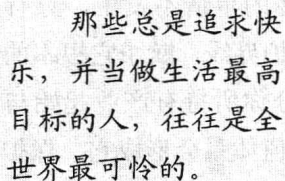 那些总是追求快
乐，并当做生活最高
目标的人，往往是全
世界最可怜的。